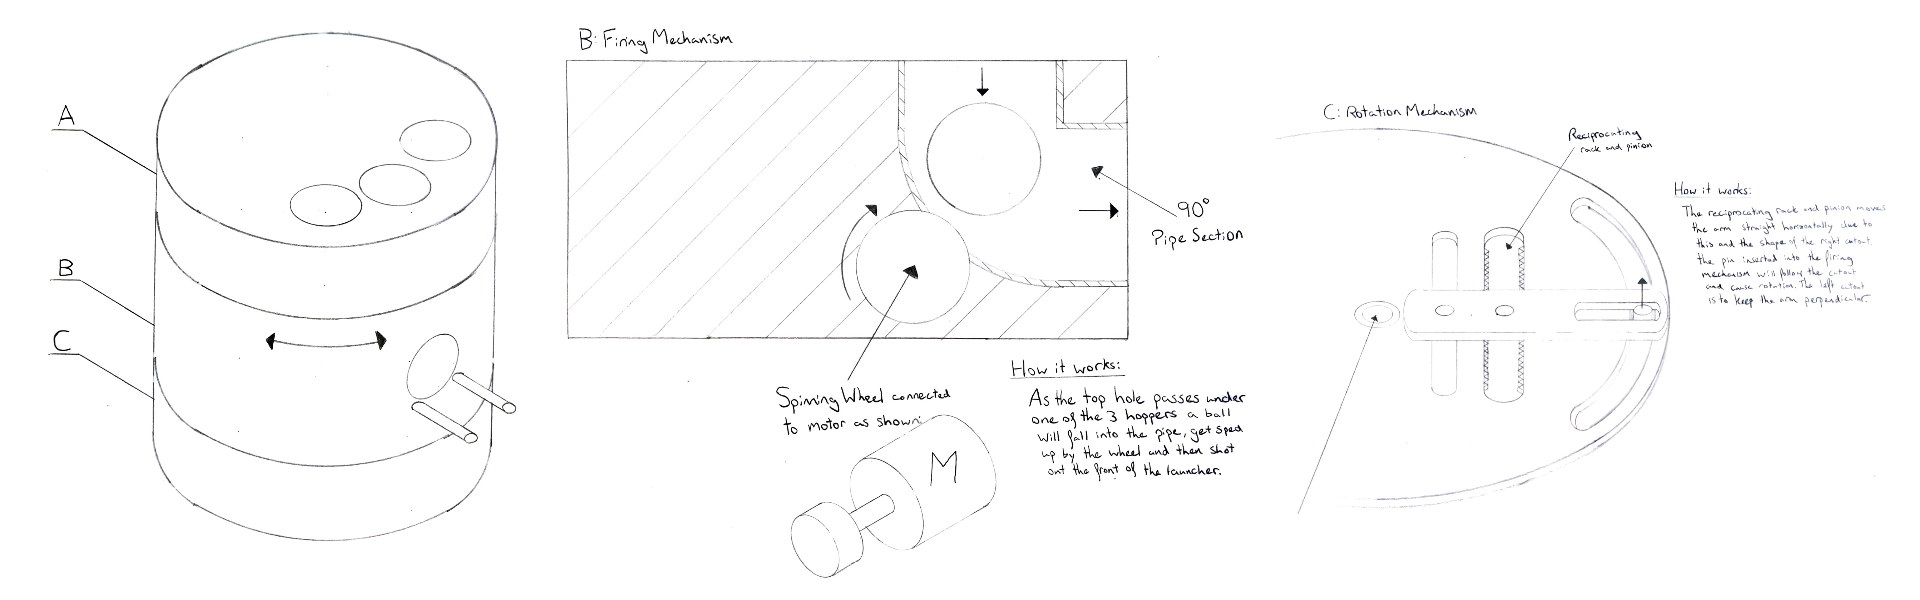 A
B
C
B: Firing Mechanism
90°
Pipe Section
Spinning Wheel connected
to motor as shown:
M
How it works:
As the top hole passes under
one of the 3 hoppers a ball
will fall into the pipe, get sped
up by the wheel and then shot
out the front of the launcher.
C: Rotation Mechanism
Reciprocating
rack and pinion
How it works:
The reciprocating rack and pinion moves
the arm straight horizontally due to
this and the shape of the right cutout
the pin inserted into the firing
mechanism will follow the cutout
and cause rotation. The left cutout
is to keep the arm perpendicular.